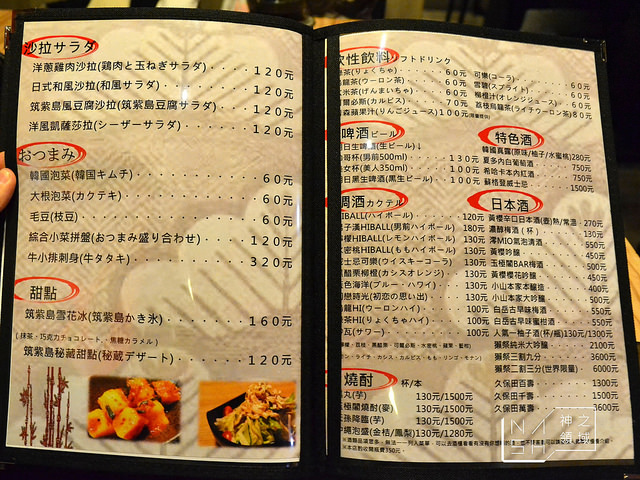 沙拉サラダ
洋蔥雞肉沙拉(鶏肉と玉ねぎサラダ)・・・・120元
日式和風沙拉(和風サラダ)・・・・120元
筑紫島風豆腐沙拉(筑紫島豆腐サラダ)・・・・120元
洋風凱薩莎拉(シーザーサラダ)・・・・120元
おつまみ
韓國泡菜(韓国キムチ)・・・・60元
大根泡菜(カクテキ)・・・・60元
毛豆(枝豆)・・・・60元
綜合小菜拼盤(おつまみ盛り合わせ)・・・・120元
牛小排刺身(牛タタキ)・・・・320元
甜點
筑紫島雪花冰(筑紫島かき氷)・・・・160元
(抹茶、巧克力チョコレート、焦糖カラメル)
筑紫島秘藏甜點(秘蔵デザート)・・・・120元
性飲料ソフトドリンク
茶(りょくちゃ)・・60元
龍茶(ウーロン茶)・・60元
米茶(げんまいちゃ)・・60元
爾必斯(カルピス)・・70元
森蘋果汁(りんごジュース)100元
可樂(コーラ)・・60元
雪碧(スプライト)・・60元
柳橙汁(オレンジジュース)・・60元
荔枝烏龍茶(ライチウーロン茶)80元
啤酒ビール
日生啤(生ビール)↓
哥杯(男前500ml)・・130元
女杯(美人350ml)・・100元
日黑生啤酒(黒生ビール)・・100元
特色酒
韓國真露(原味/柚子/水蜜桃)280元
夏多內白葡萄酒 750元
希哈卡本內紅酒 750元
蘇格登威士忌 1500元
調酒カクテル
HIBALL(ハイボール)・・120元
子漢HIBALL(男前ハイボール)180元
檬HIBALL(レモンハイボール)130元
蜜桃HIBALL(ももハイボール)130元
士忌可樂(ウイスキーコーラ)130元
醋栗柳橙(カシスオレンジ)・・130元
色海洋(ブルー・ハワイ)・・130元
戀時光(初恋の思い出)・・130元
龍HI(ウーロンハイ)・・100元
茶HI(りょくちゃハイ)・・100元
瓦(サワー)・・100元
日本酒
黃櫻辛口日本酒(壺)熱/常溫 270元
濃醇梅酒(杯) 130元
澪MIO氣泡清酒 550元
黃櫻吟釀 450元
玉極閣BAR梅酒 500元
黃櫻櫻花吟釀 450元
小山本家本釀造 400元
小山本家大吟釀 500元
白岳古早味梅酒 550元
白岳古早味蜜柑酒 550元
人氣一柚子酒(杯/瓶)130元/1300元
獺祭純米大吟釀 2100元
獺祭三割九分 3600元
獺祭二割三分(世界限量) 6000元
久保田百壽 1300元
久保田千壽 1500元
久保田萬壽 3600元
燒酎 杯/本
丸(芋) 130元/1500元
極閣燒酎(麥) 130元/1500元
孫降臨(芋) 130元/1500元
繩泡盛(金桔/鳳梨)130元/1280元
神之領域